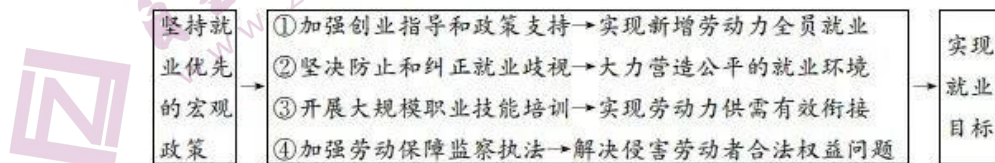 坚持就
业优先
的宏观
政策
→
①加强创业指导和政策支持→实现新增劳动力全员就业
②坚决防止和纠正就业歧视→大力营造公平的就业环境
③开展大规模职业技能培训→实现劳动力供需有效衔接
④加强劳动保障监察执法→解决侵害劳动者合法权益问题
→
实现
就业
目标